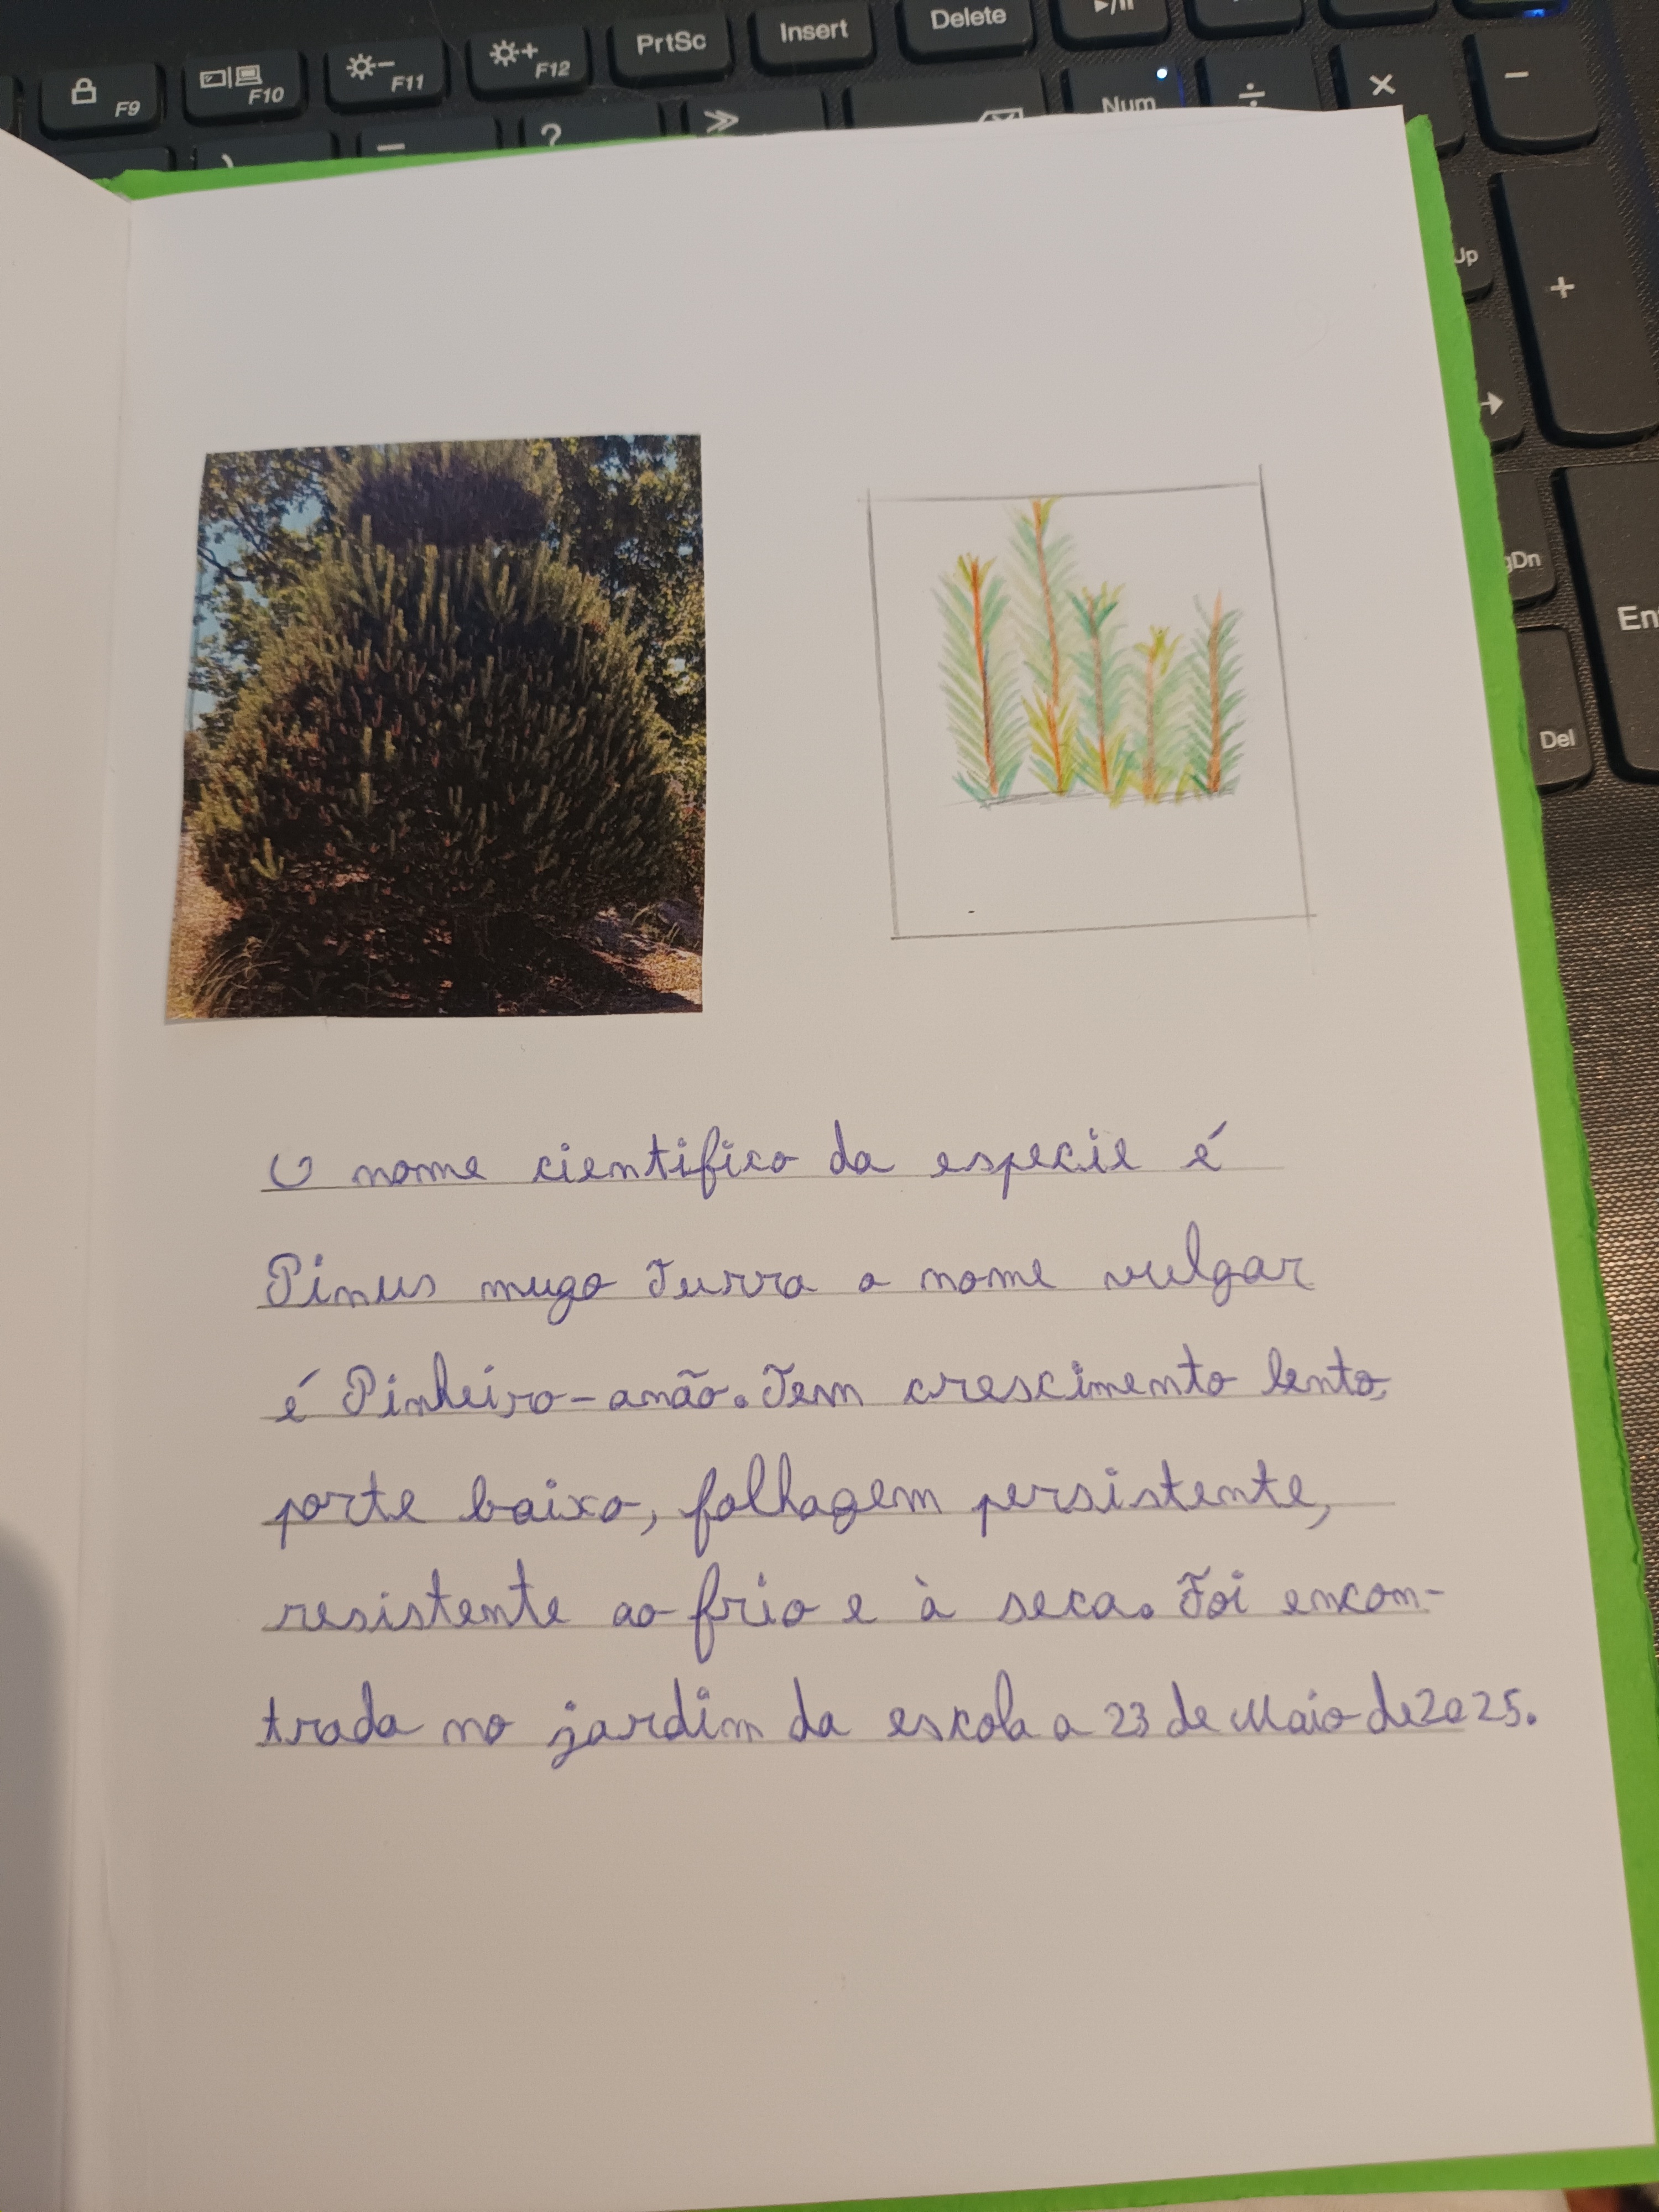 F9
F10
F11
F12
PrtSc
Insert
Delete
?
Num
÷
×
−
+
Up
gDn
Del
O nome cientifico da especie é
Pinus mugo Turra o nome vulgar
é Pinheiro-anão. Tem crescimento lento,
porte baixo, folhagem persistente,
resistente ao frio e à seca. Foi encon-
trada no jardim da escola a 23 de Maio de 2025.